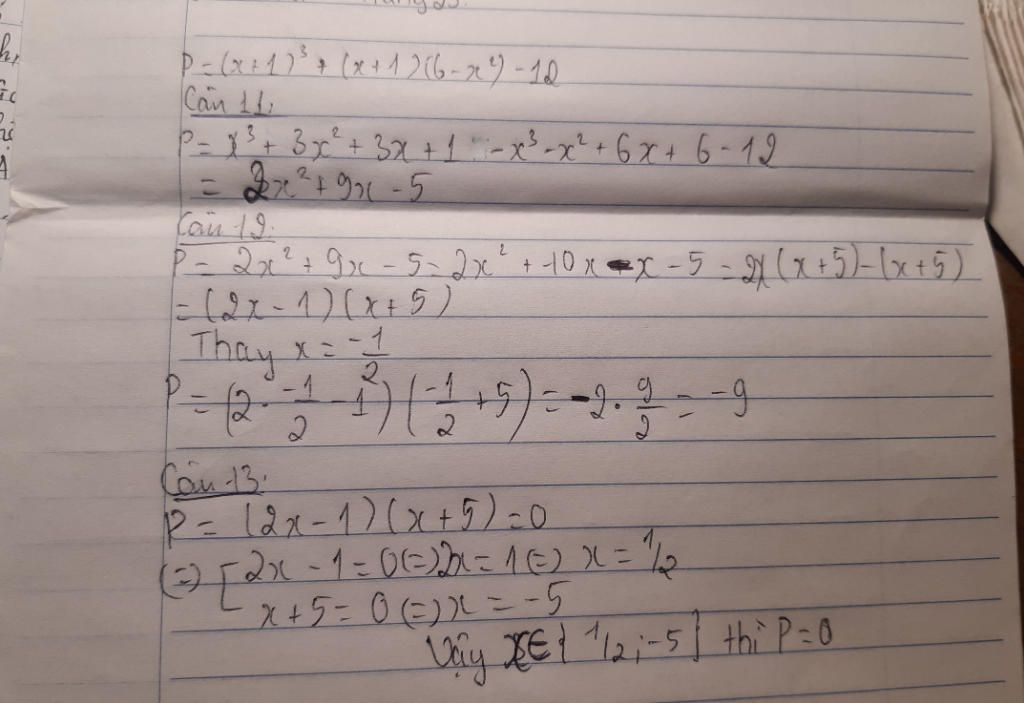 P = (x+1)³ + (x+1)(6-x²) - 12
Câu 11:
P = x³ + 3x² + 3x + 1 - x³ - x² + 6x + 6 - 12
= 2x² + 9x - 5
Câu 12:
P = 2x² + 9x - 5 = 2x² + 10x - x - 5 = 2x(x+5) - (x+5)
= (2x - 1)(x + 5)
Thay x = -1/2
P = (2 . -1/2 - 1)(-1/2 + 5) = -2 . 9/2 = -9
Câu 13:
P = (2x - 1)(x + 5) = 0
(=) [ 2x - 1 = 0 (=) 2x = 1 (=) x = 1/2
x + 5 = 0 (=) x = -5
Vậy x ∈ { 1/2 ; -5 } thì P = 0